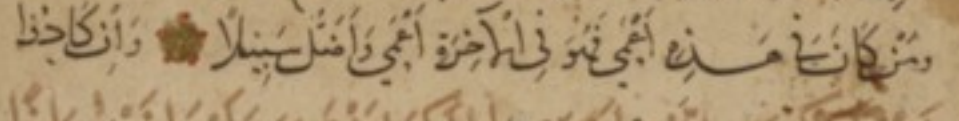 ومن كان في هذه أعمى فهو في الآخرة أعمى وأضل سبيلا وإن كادوا